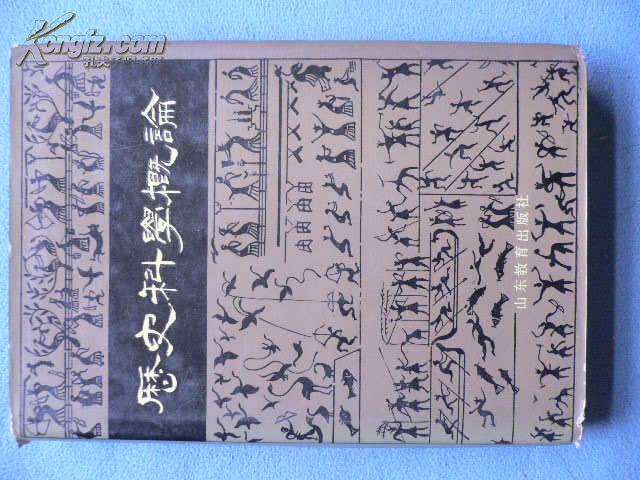 Kongfz.com
孔夫子旧书网
歷史科學概論
山东教育出版社